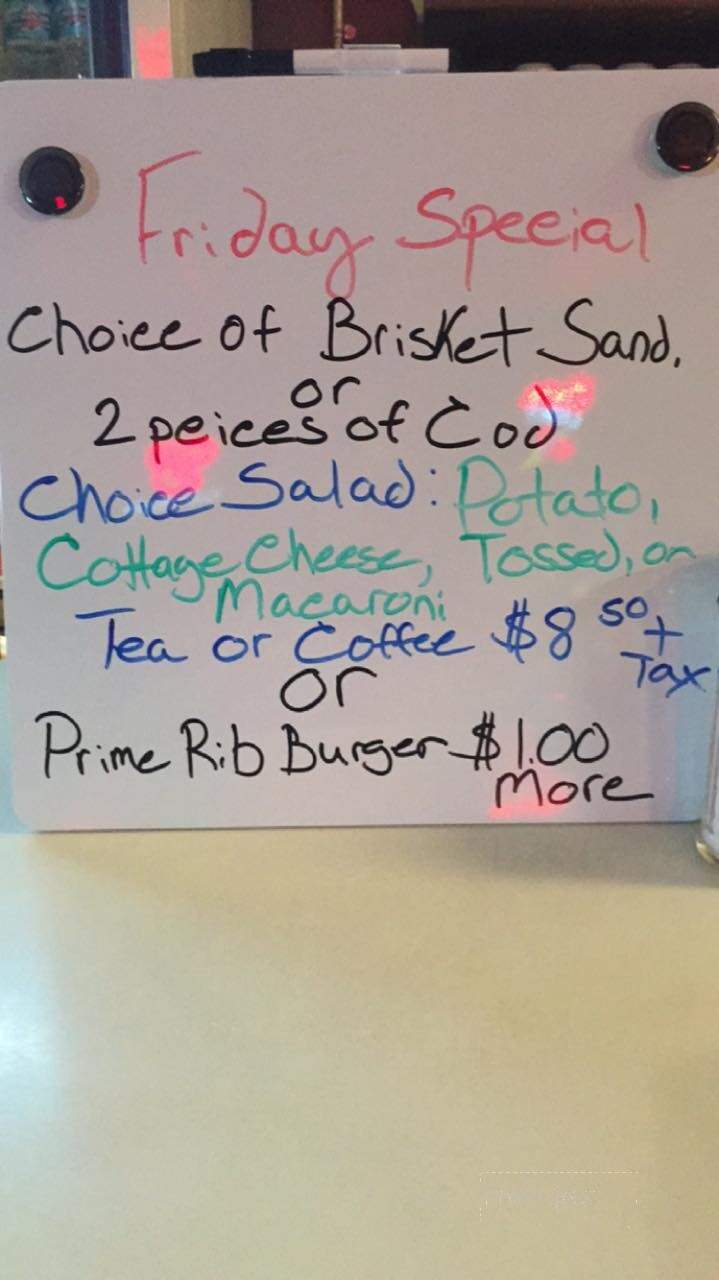 Friday Special
Choice of Brisket Sand.
or
2 peices of Cod
Choice Salad: Potato,
Cottage Cheese, Tossed, or
Macaroni
Tea or Coffee $8 50 +
Tax
or
Prime Rib Burger $1.00
More